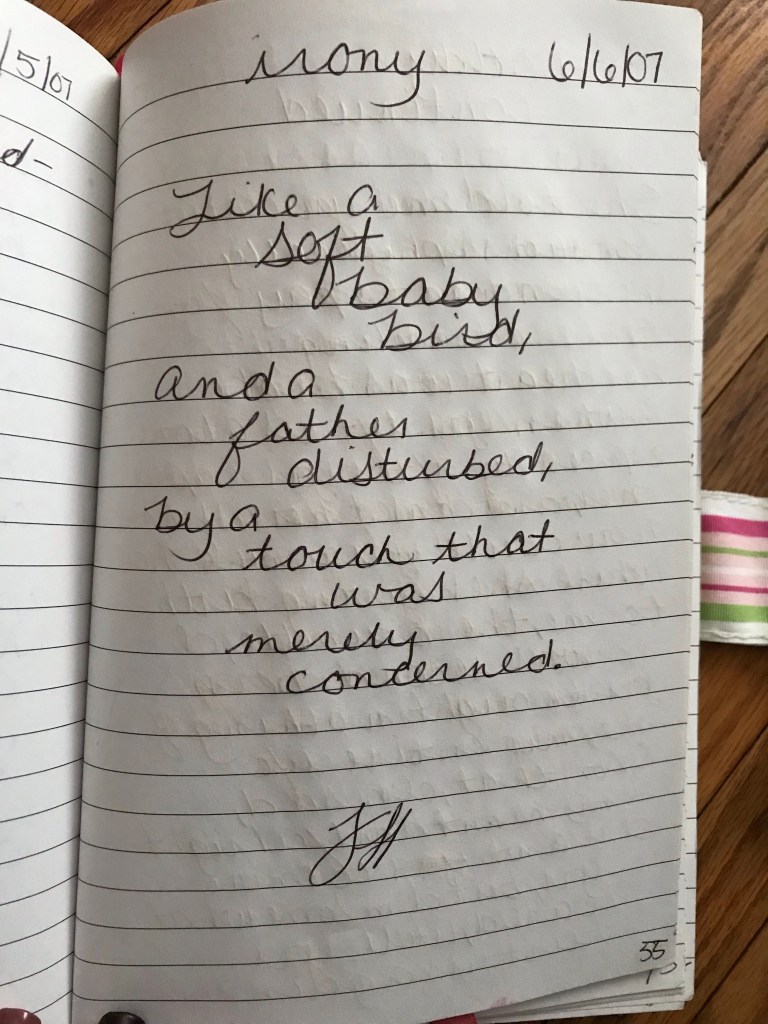 /5/07
d-
irony 6/6/07
Like a
soft
baby
bird,
and a
father
disturbed,
by a
touch that
was
merely
concerned.
JH
35